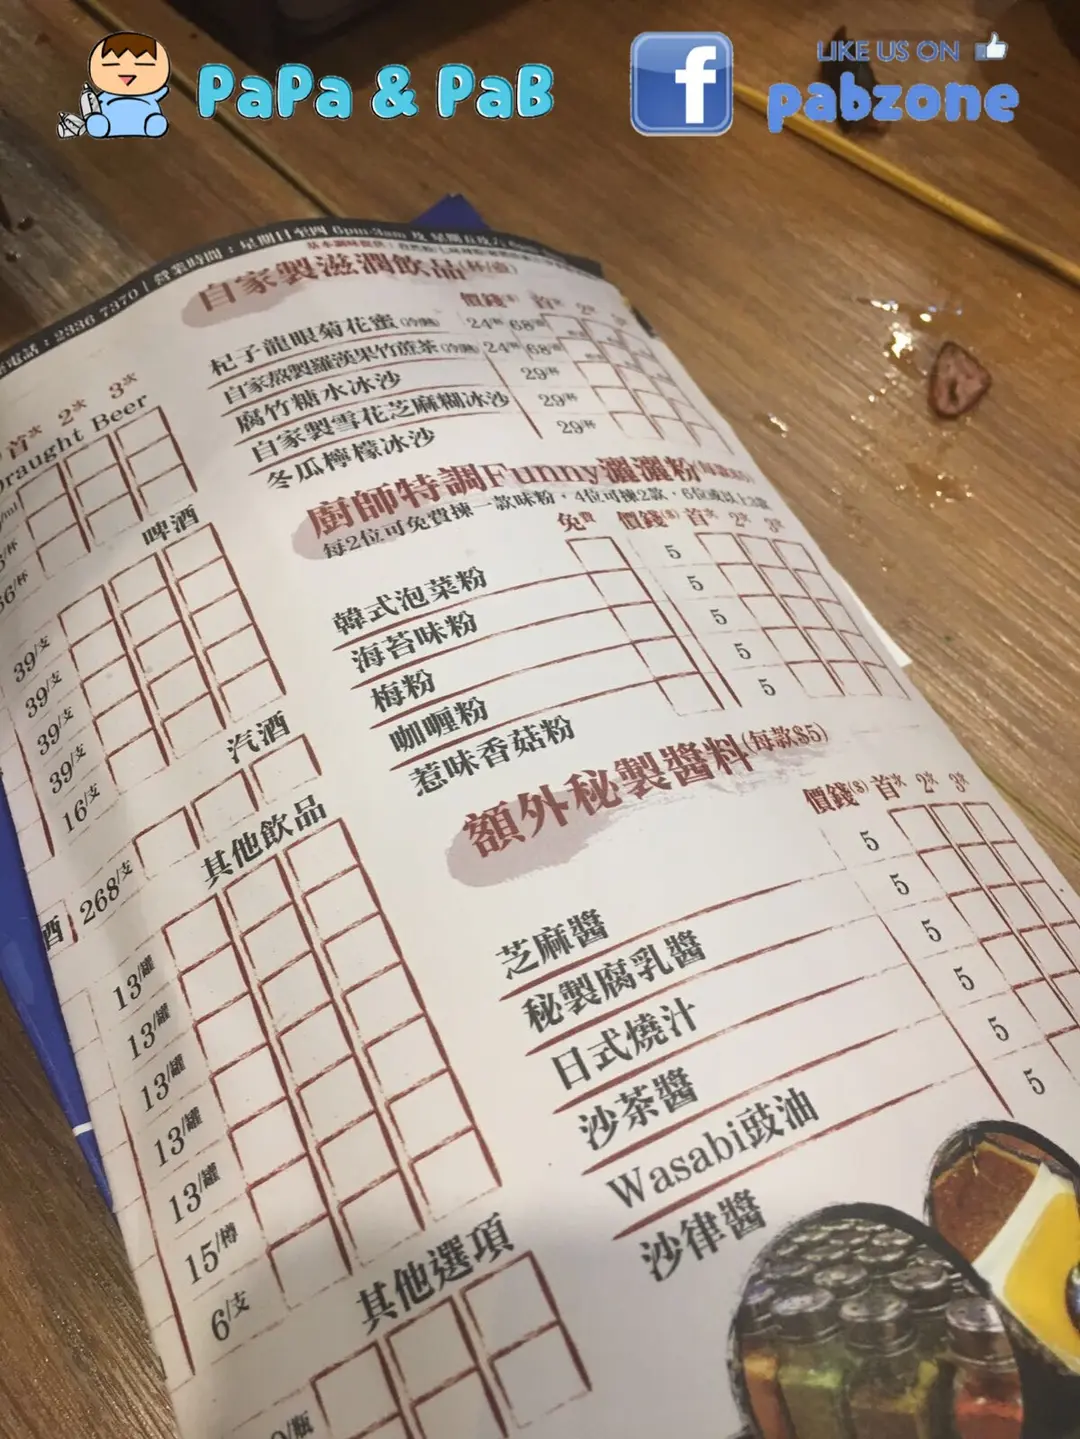 PaPa & PaB
LIKE US ON
pabzone
電話：2336 7370 | 營業時間：星期日至四 6pm-3am 及 星期五及六
自家製滋潤飲品
價錢($) 首次 2次 3次
杞子龍眼菊花蜜(冷/熱) 24/杯 68/壺
自家熬製羅漢果竹蔗茶(冷/熱) 24/杯 68/壺
腐竹糖水冰沙 29/杯
自家製雪花芝麻糊冰沙 29/杯
冬瓜檸檬冰沙 29/杯
廚師特調Funny灑灑粉(每款$5)
每2位可免費揀一款味粉，4位可揀2款，6位或以上3款
免費 價錢($) 首次 2次 3次
韓式泡菜粉 5
海苔味粉 5
梅粉 5
咖喱粉 5
惹味香菇粉 5
額外秘製醬料(每款$5)
價錢($) 首次 2次 3次
芝麻醬 5
秘製腐乳醬 5
日式燒汁 5
沙茶醬 5
Wasabi豉油 5
沙律醬 5
首次 2次 3次
Draught Beer
啤酒
39/支
39/支
39/支
39/支
16/支
汽酒
酒 268/支
其他飲品
13/罐
13/罐
13/罐
13/罐
13/罐
15/樽
6/支
其他選項